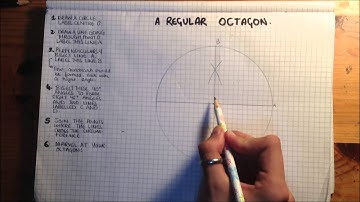 A REGULAR OCTAGON.
1 DRAW A CIRCLE
LABEL CENTRE O
2 DRAW LINE GOING
THROUGH POINT O
LABEL THIS LINE A
3 PERPENDICULARLY
BISECT LINE A,
LABEL THIS LINE B
4 BISECT THESE 90°
ANGLES TO FORM
EIGHT 45° ANGLES
AND TWO LINES
LABELLED C AND
D
5 JOIN THE POINTS
WHERE THE LINES
CROSS THE CIRCUM-
FERENCE
6 MARVEL AT YOUR
OCTAGON!
B
A